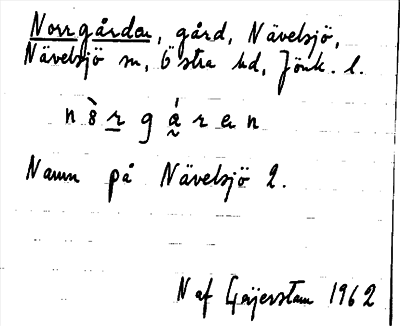 Norrgården, gård, Nävelsjö,
Nävelsjö sn, Östra hd, Jönk. l.
n ò r g á r e n
Namn på Nävelsjö 2.
N af Geijerstam 1962